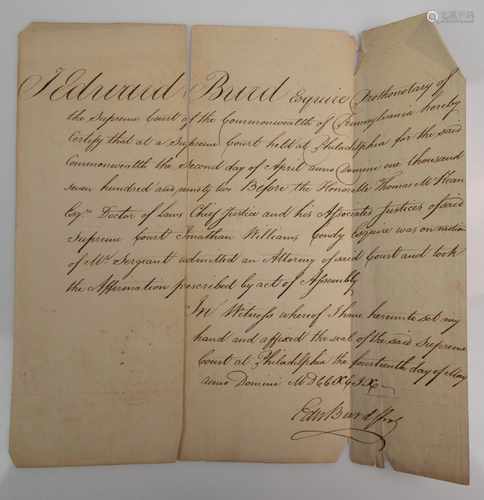 I Edward Burd Esquire Prothonotary of
the Supreme Court of the Commonwealth of Pennsylvania hereby
Certify that at a Supreme Court held at Philadelphia for the said
Commonwealth the Second day of April anno Domini one thousand
seven hundred and ninety two Before the Honorable Thomas McKean
Esqre Doctor of Laws Chief Justice and his Associates Justices of said
Supreme Court Jonathan Williams Condy Esquire was on motion
of Mr. Sergeant admitted an Attorney of said Court and took
the Affirmation prescribed by act of Assembly
In Witness whereof I have hereunto set my
hand and affixed the seal of the said Supreme
Court at Philadelphia the fourteenth day of May
anno Domini MDCCXCIX
Edw Burd Prot